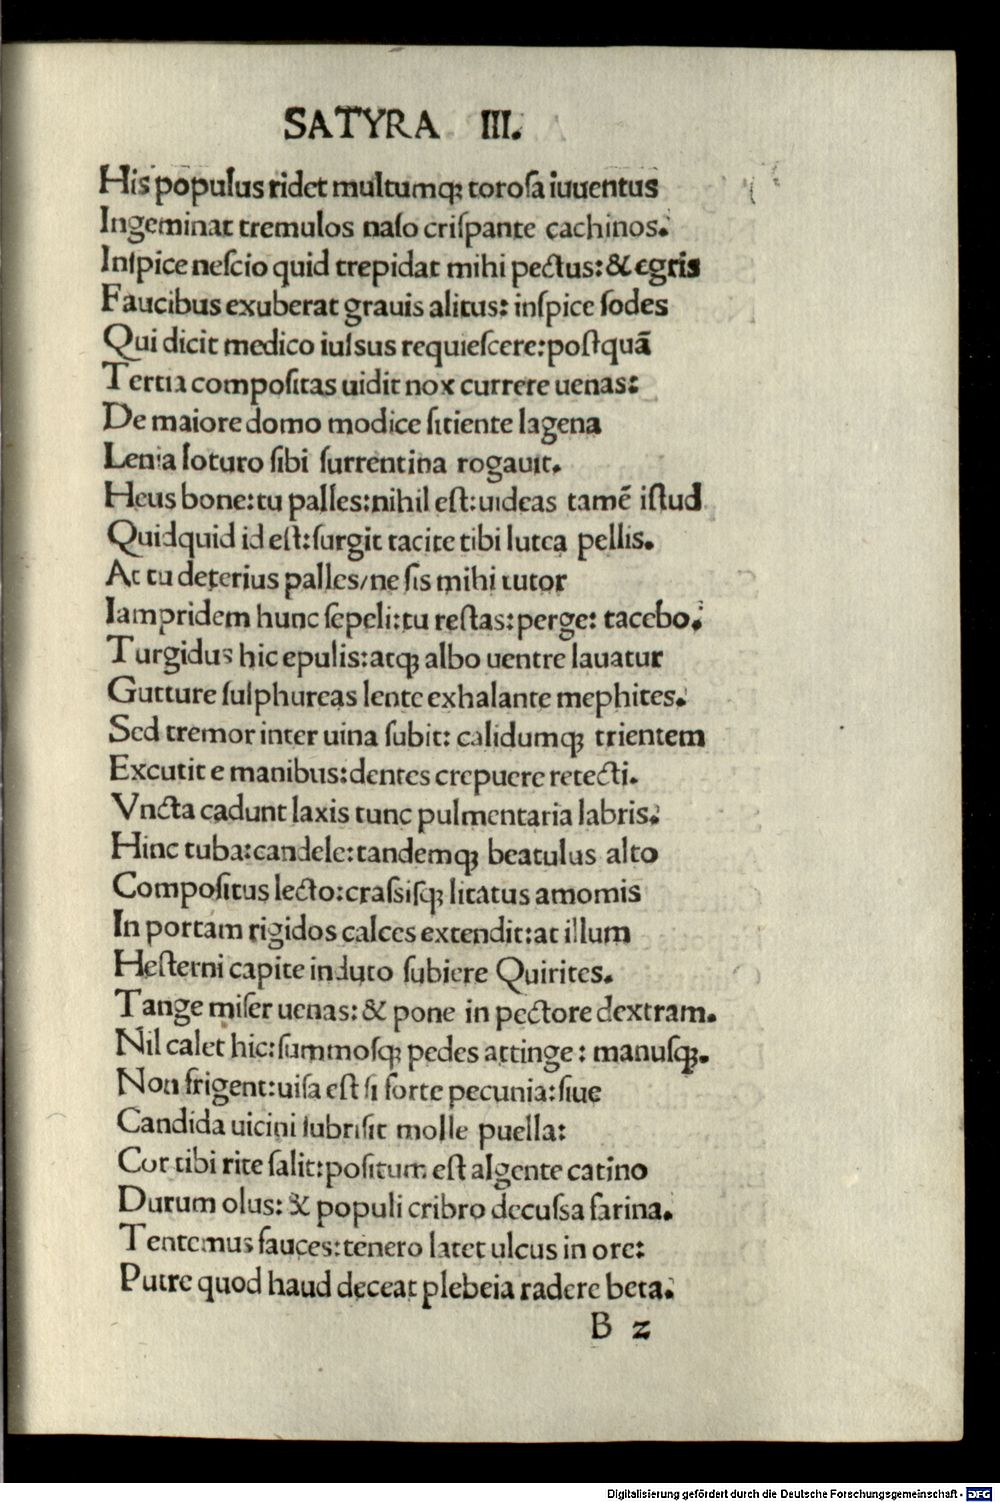 SATYRA III.
His populus ridet multumqꝫ toroſa iuuentus
Ingeminat tremulos naſo criſpante cachinos.
Inſpice neſcio quid trepidat mihi pectus: & egris
Faucibus exuberat grauis alitus: inſpice ſodes
Qui dicit medico iuſsus requieſcere: poſtquā
Tertia compoſitas uidit nox currere uenas:
De maiore domo modice ſitiente lagena
Lenia loturo ſibi ſurrentina rogauit.
Heus bone: tu palles: nihil eſt: uideas tamē iſtud
Quidquid id eſt: ſurgit tacite tibi lutea pellis.
At tu deterius palles/ne ſis mihi tutor
Iampridem hunc ſepeli: tu reſtas: perge: tacebo.
Turgidus hic epulis: atqꝫ albo uentre lauatur
Gutture ſulphureas lente exhalante mephites.
Sed tremor inter uina ſubit: calidumqꝫ trientem
Excutit e manibus: dentes crepuere retecti.
Vncta cadunt laxis tunc pulmentaria labris.
Hinc tuba: candele: tandemqꝫ beatulus alto
Compoſitus lecto: craſsiſqꝫ litatus amomis
In portam rigidos calces extendit: at illum
Heſterni capite induto ſubiere Quirites.
Tange miſer uenas: & pone in pectore dextram.
Nil calet hic: ſummoſqꝫ pedes attinge: manuſqꝫ.
Non frigent: uiſa eſt ſi forte pecunia: ſiue
Candida uicini ſubriſit molle puella:
Cor tibi rite ſalit: poſitum eſt algente catino
Durum olus: & populi cribro decuſsa farina.
Tentemus fauces: tenero latet ulcus in ore:
Putre quod haud deceat plebeia radere beta.
B 2
Digitalisierung gefördert durch die Deutsche Forschungsgemeinschaft - DFG